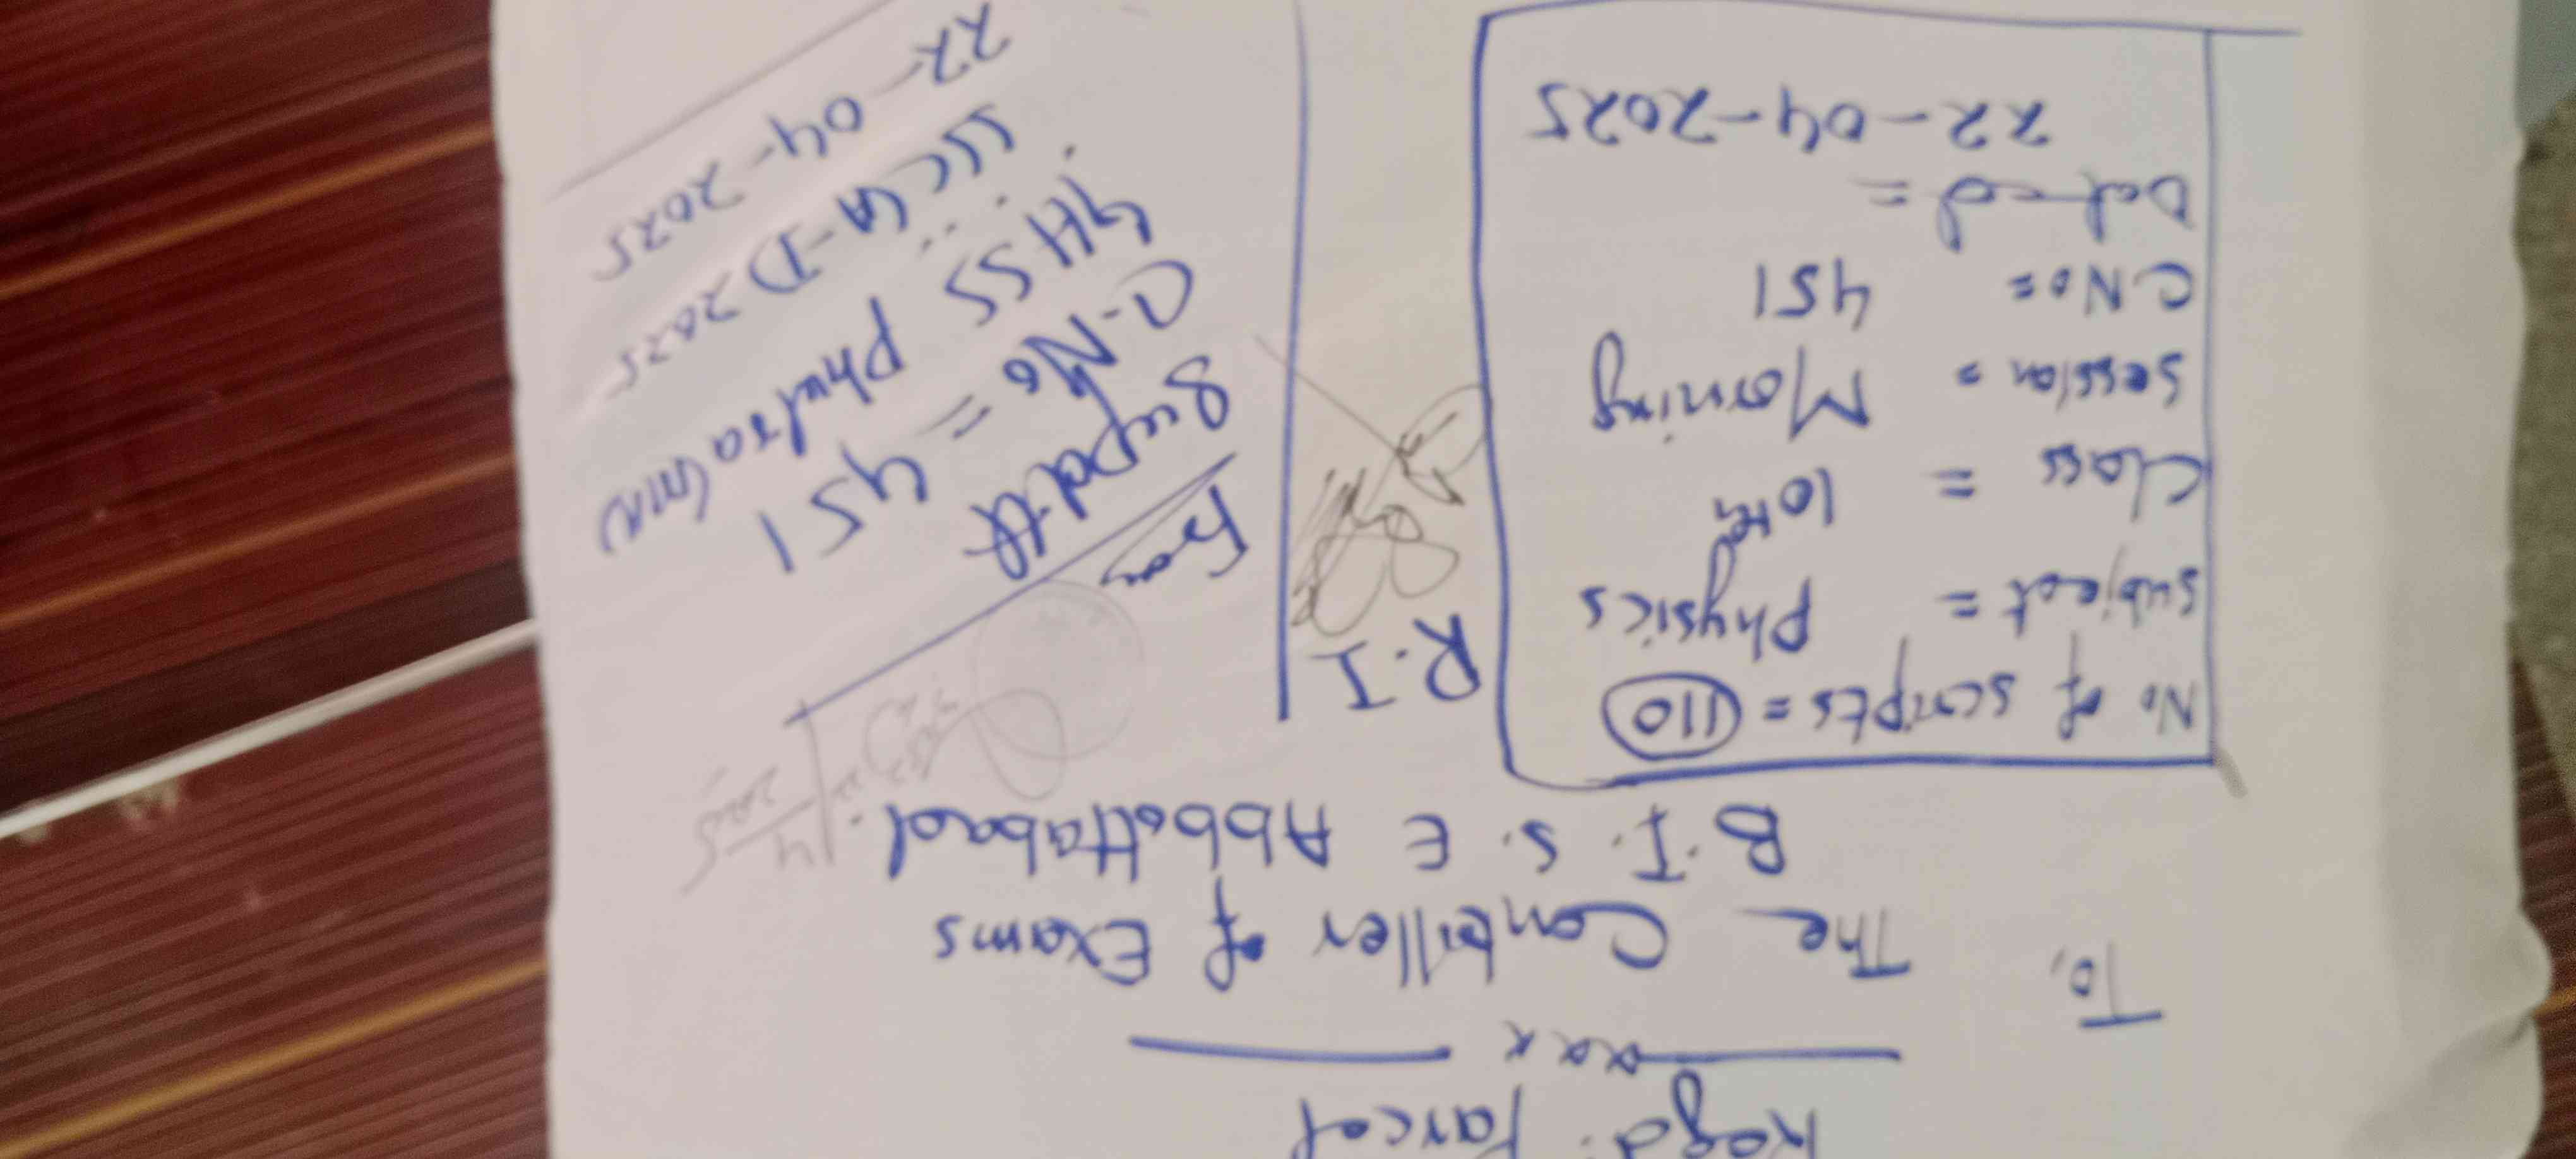 Regd: Parcel
xxx
To,
The Contriller of Exams
B.I.S.E Abbottabad.
No of scripts = 110
Subject = Physics
Class = 10th
Session = Morning
C No = 451
Dated =
22-04-2025
R.I
From
Supdtt
C.No = 451
GHSS Phulra (MN)
SSC (A-I) 2025
22-04-2025